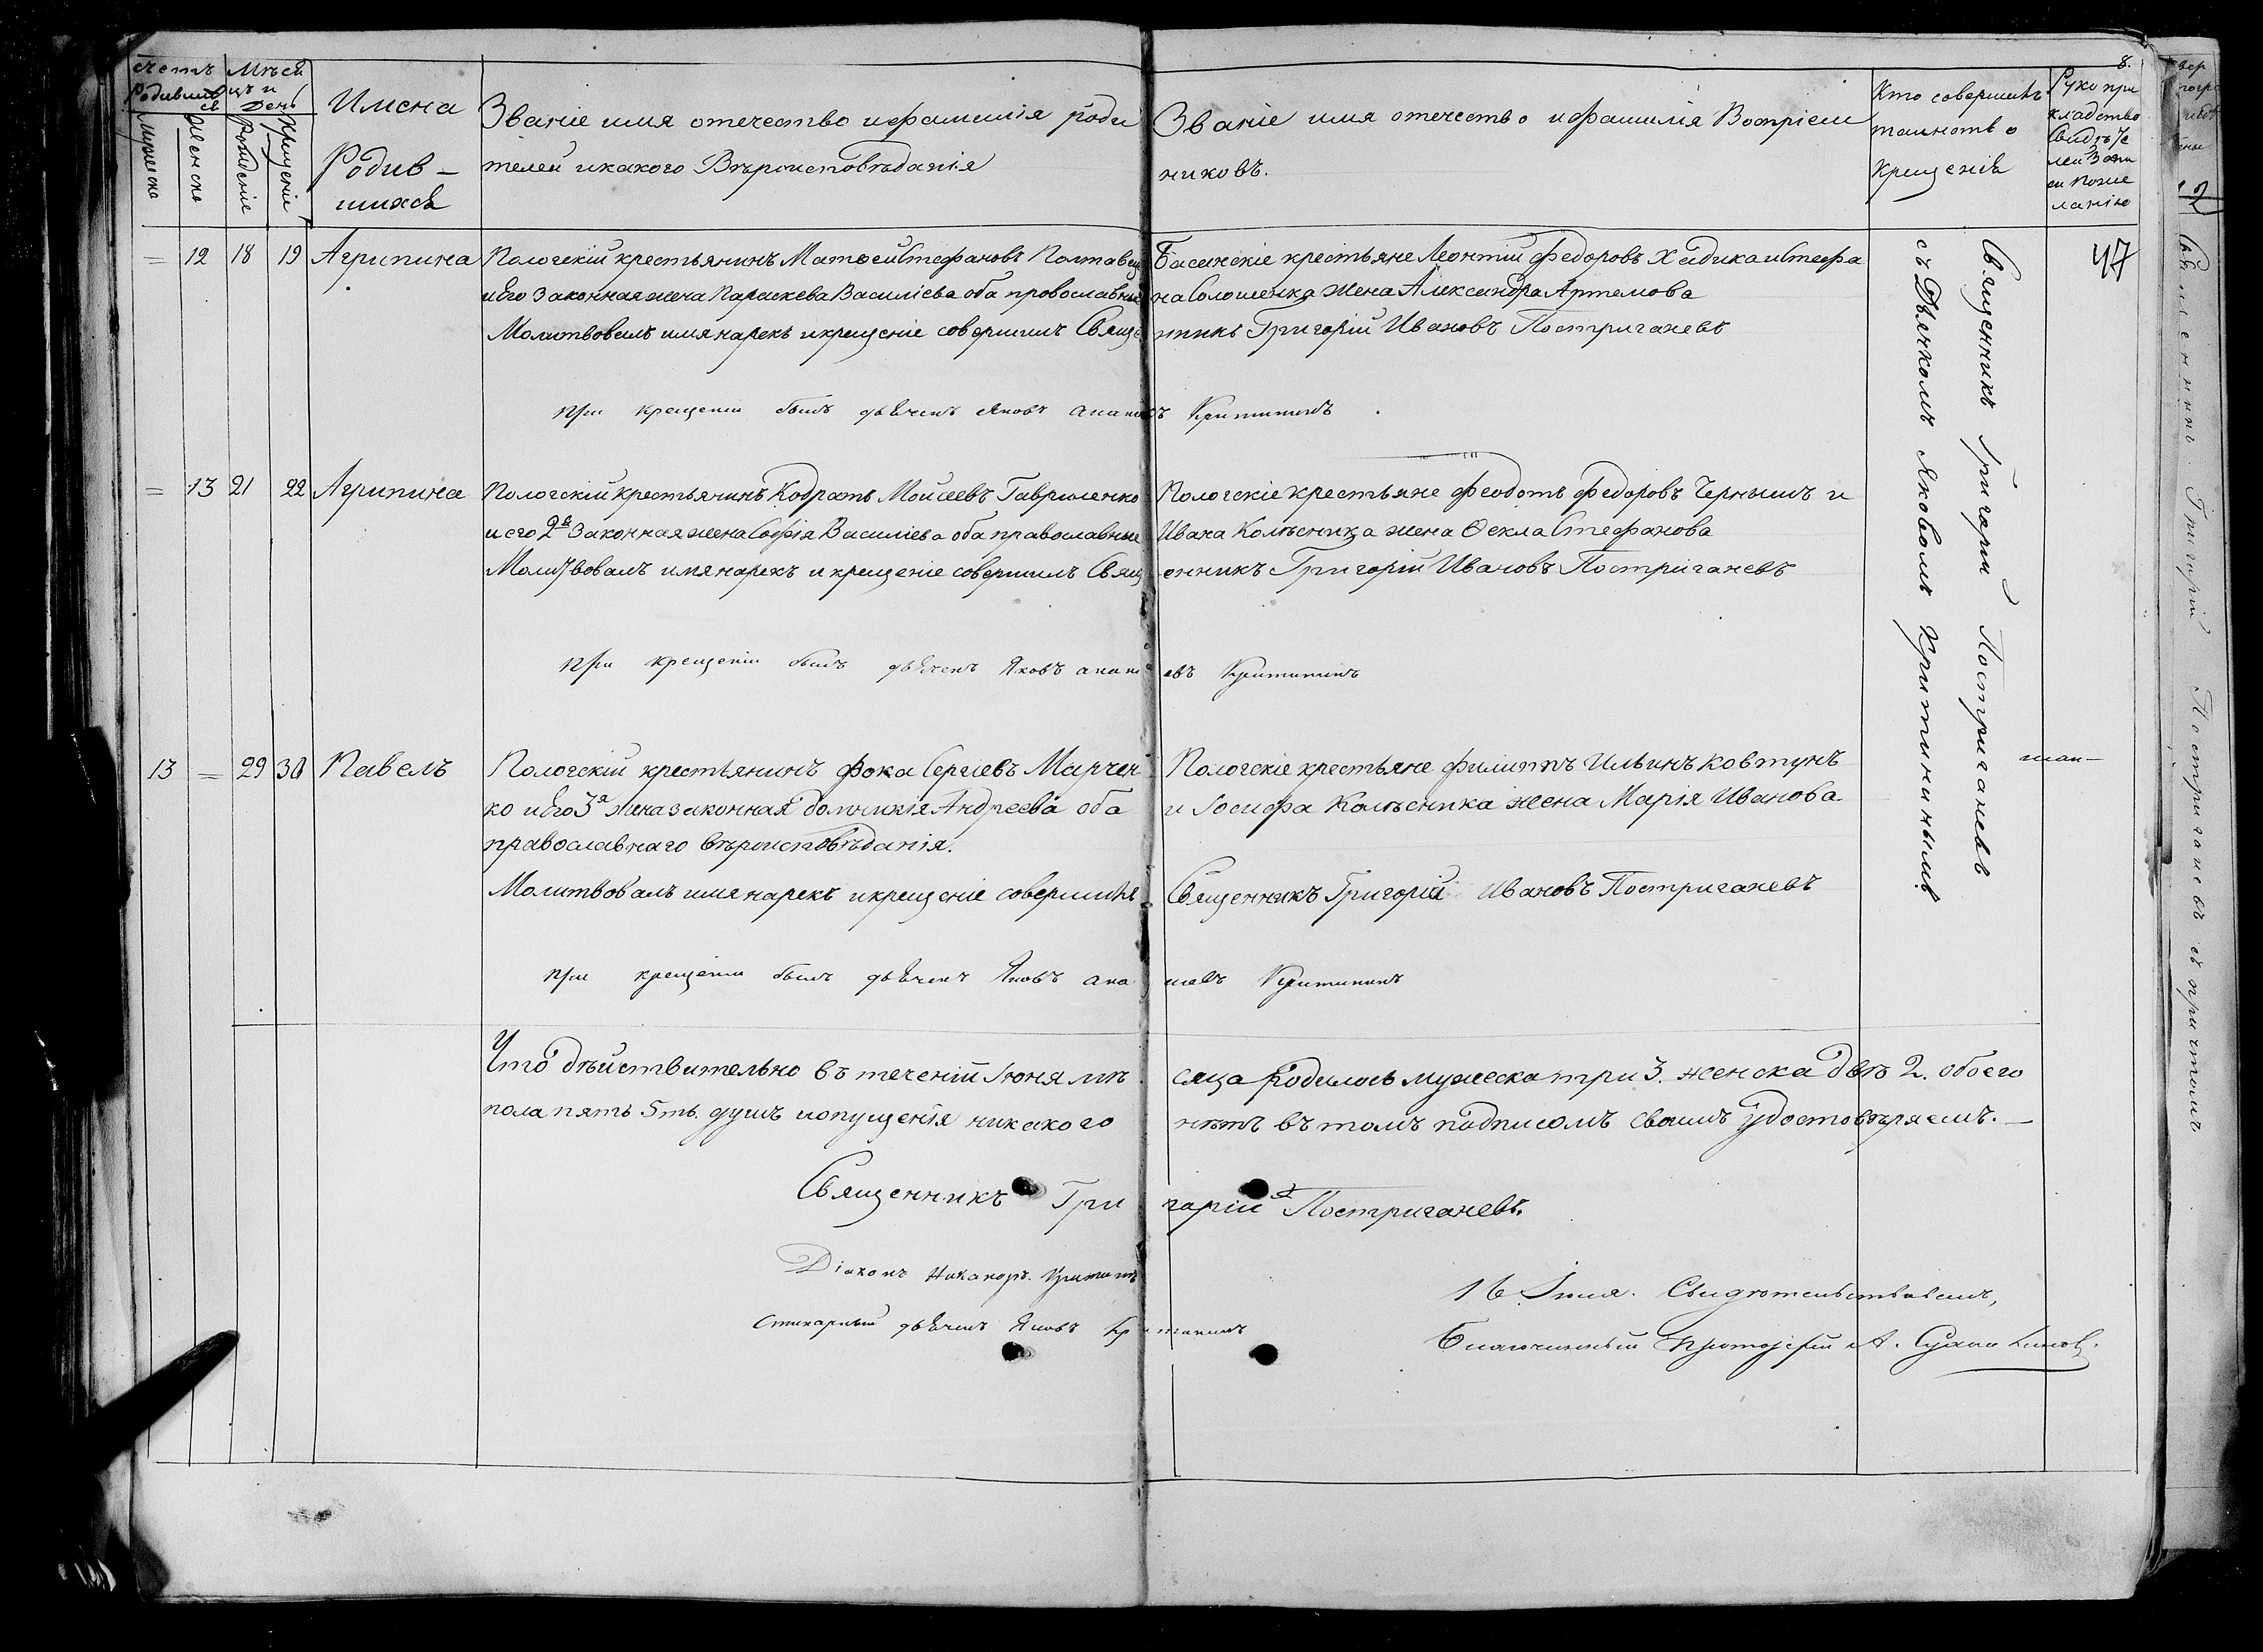 8.
Счетъ Родившихся
Мѣсяцъ и День
Имена Родив-
шихся
Званіе имя отечество и фамилія роди
телей и какого Вѣроисповѣданія
Званіе имя отечество и фамилія Воспріем
никовъ.
Кто совершилъ
таинство
Крещенія
Руко при
кладство
Свидѣте
лей Запи
си поже
ланію
мужеска
Женска
Рожденіе
Крещеніе
= 12 18 19 Агрипина
Пологскій крестьянинъ Матѳей Стефановъ Полтавец
и Его Законная жена Параскева Василіева оба провославные
Молитвовалъ имя нарекъ и крещеніе совершилъ Свяще
Басанскіе крестьяне Леонтій Федоровъ Хайдика и Стефа
на Солошенка жена Александра Артемова
нникъ Григорій Ивановъ Постригачевъ
47
при крещеніи былъ дьячекъ Яковъ Ананіевъ Критининъ
= 13 21 22 Агрипина
Пологскій крестьянинъ Кодратъ Моисеевъ Гавриленко
и его 2я Законная жена Софія Василіева оба православные
Молитвовалъ имя нарекъ и крещеніе совершилъ Свящ
Пологскіе крестьяне Феодотъ Федоровъ Чернышъ и
Ивана Колѣсника жена Ѳекла Стефанова
енникъ Григорій Ивановъ Постригачевъ
при крещеніи былъ дьячекъ Яковъ Ананіевъ Критининъ
13 = 29 30 Павелъ
Пологскій крестьянинъ Фока Сергіевъ Марчен
ко и Его 3я жена законная Домникія Андреева оба
православнаго вѣроисповѣданія.
Молитвовалъ имя нарекъ и крещеніе совершилъ
Пологскіе крестьяне Филиппъ Ильинъ Ковтунъ
и Іосифа Колѣсника жена Марія Иванова
Священникъ Григорій Ивановъ Постригачевъ
при крещеніи былъ дьячекъ Яковъ Ананіевъ Критининъ
Священникъ Григорій Постригачевъ
съ Дьячкомъ Яковомъ Критининымъ
Что дѣйствительно въ теченіи Іюня мѣ
сяца родилось мужеска три 3. женска двѣ 2. обоего
пола пять 5ть. душъ и опущенія никакого
нѣтъ въ томъ подписомъ своимъ удостовѣряемъ. —
Священникъ Григорій Постригачевъ.
Діаконъ Никаноръ Критининъ
Стихарный дьячекъ Яковъ Критининъ
16 Іюля. Свидѣтельствовалъ,
Благочинный Протоіерей А.
Священникъ Григорій Постригачевъ съ причтомъ